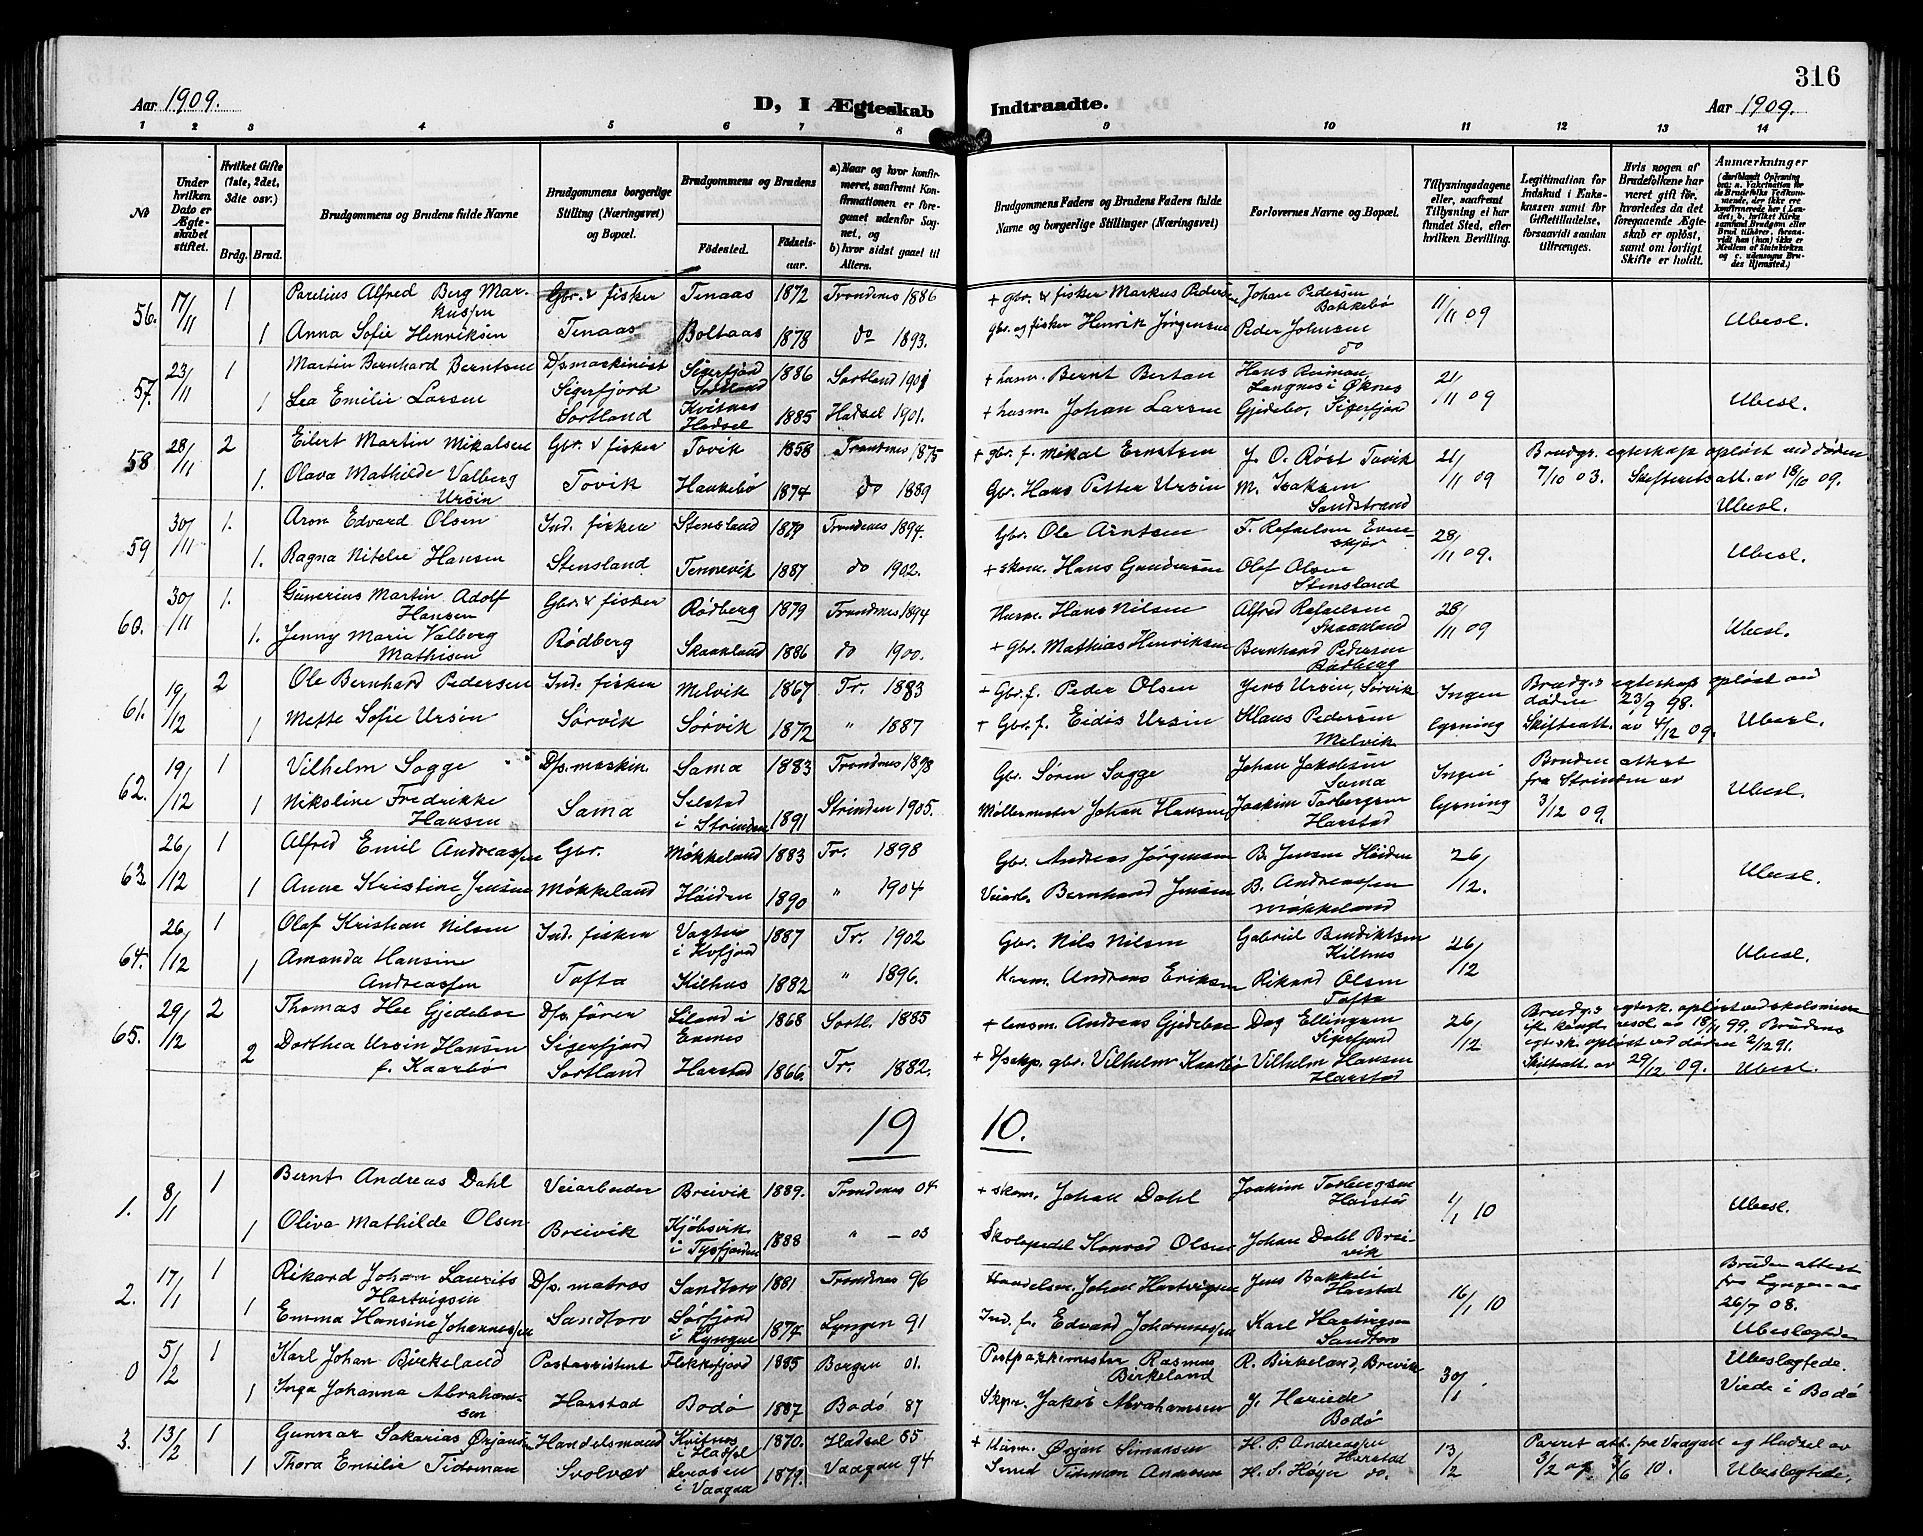 316
Aar 1909.
D, I Ægteskab
Indtraadte.
Aar 1909.
1 2 3 4 5 6 7 8 9 10 11 12 13 14
No
Under hvilken Dato er Ægteskabet stiftet.
Hvilket Gifte (1ste, 2det, 3die osv.)
Brdg. Brud.
Brudgommens og Brudens fulde Navne
Brudgommens borgerlige Stilling (Næringsvei) og Bopæl.
Brudgommens og Brudens
Fødested. Fødselsaar.
a) Naar og hvor konfirmeret, saafremt Konfirmationen er foregaaet udenfor Sognet, og
b) hvor sidst gaaet til Alters.
Brudgommens Faders og Brudens Faders fulde Navne og borgerlige Stillinger (Næringsvei)
Forlovernes Navne og Bopæl.
Tillysningsdagene eller, saafremt Tillysning ei har fundet Sted, efter hvilken Bevilling.
Legitimation for Indskud i Enkekassen samt for Giftetilladelse, forsaavidt saadan tiltrænges.
Hvis nogen af Brudefolkene har været gift før, hvorledes da det foregaaende Ægteskab er opløst, samt om lovligt Skifte er holdt.
Anmærkninger
56. 17/11 1 Parelius Alfred Berg Markussen Gbr. & fisker Tenaas 1872 Trondenes 1886 + gbr. & fisker Markus Pedersen Johan Pedersen Bakkebø 11/11 09
1 Anna Sofie Henriksen Tenaas Boltaas 1878 do 1893. gbr. og fisker Henrik Jørgensen Peder Johnsen do Ubesl.
57. 23/11 1 Martin Bernhard Berntsen D/s maskinist Sigerfjord Sortland 1886 Sortland 1901 + husm. Bernt Bertan Hans Reiman Langnes i Øknes 21/11 09
1 Lea Emilie Larsen Sigerfjord Sortland Kvitnes Hadsel 1885 Hadsel 1901. + husm. Johan Larsen Gjedebo, Sigerfjord Ubesl.
58 28/11 2 Eilert Martin Mikalsen Gbr. & fisker Tovik 1858 Trondenes 1875 + gbr. f. Mikal Erntsen J. O. Røst Tovik 21/11 09 Brudgs. egteskap opløst ved døden 7/10 03. Skifteretsatt. av 18/10 09.
1. Olava Mathilde Valberg Ursin Tovik Haukebø 1874 do 1889 Gbr. Hans Petter Ursin M. Isaksen Sandstrand Ubesl.
59 30/11 1. Aron Edvard Olsen Ind. fisker Stensland 1879 Trondenes 1894. Gbr. Ole Arntsen F. Rafaelsen Evenskjær 28/11 09.
1. Ragna Nitelie Hansen Stensland Tennevik 1887 do 1902. + skom. Hans Gundersen Olaf Olsen Stensland Ubesl.
60. 30/11 1. Gunerius Martin Adolf Hansen Gbr. & fisker Rødberg 1879 Trondenes 1894 Husm. Hans Nilsen Alfred Rafaelsen Skaanland 28/11 09
1. Jenny Marie Valberg Mathisen Rødberg Skaanland 1886 do 1900. + Gbr. Mathias Henriksen Bernhard Pedersen Rødberg Ubesl.
61. 19/12 2 Ole Bernhard Pedersen Ind. fisker Melvik 1867 Tr. 1883 + Gbr. f. Peder Olsen Jens Ursin, Sørvik Ingen lysning Brudgs egteskap opløst ved døden 23/9 98. Skifteatt. av 4/12 09.
1 Mette Sofie Ursin Sørvik Sørvik 1872 " 1887 + Gbr. f. Eidis Ursin Klaus Pedersen Melvik Ubesl.
62. 19/12 1 Vilhelm Sogge D/s. maskin. Sama 1883 Trondnes 1898 Gbr. Søren Sogge Johan Jakobsen Sama Ingen lysning Bruden attest fra Strinden av 3/12 09.
1 Nikoline Fredrikke Hansen Sama Selstad i Strinden 1891 Strinden 1905. Møllermester Johan Hansen Joakim Torbergsen Harstad Ubesl.
63. 26/12 1 Alfred Emil Andreassen Gbr. Møkkeland 1883 Tr. 1898 Gbr. Andreas Jørgensen B. Jensen Høiden 26/12.
1 Anne Kristine Jensen Møkkeland Høiden 1890 " 1904 Veiarb. Bernhard Jensen B. Andreassen Møkkeland Ubesl.
64. 26/12 1 Olaf Kristian Nilsen Ind. fisker i Kvfjord 1887 Tr. 1902 Gbr. Nils Nilsen Gabriel Bendiktsen Kilhus 26/12
1 Amanda Hansine Andreassen Tofta Kilhus 1882 " 1896. Andreas Eriksen Rikard Olsen Tofta Ubesl.
65. 29/12 2 Thomas Hee Gjedeboe D/s. fører Liland i Evenes 1868 Sortl. 1885 + lensm. Andreas Gjedeboe Dag Ellingsen Sigerfjord 26/12 Brudgs egtesk. opløst ved skilsmisse ift. kongl. resol. av 18/11 99. Brudens egtesk. opløst ved døden 2/12 91. Skifteatt. av 29/12 09.
2 Dorthea Ursin Hansen f. Kaarbø Sigerfjord Sortland Harstad 1866. Tr. 1882. + D/sexp. gbr. Vilhelm Kaarbø Vilhelm Hansen Harstad Ubesl.
19 10.
1. 8/1 1 Bernt Andreas Dahl Veiarbeider Breivik 1889. Trondenes 04 + skom. Johan Dahl Joakim Torbergsen Harstad 1/1 10
1 Oliva Mathilde Olsen Breivik Kjøbsvik i Tysfjorden 1888 " - 03 Skolepedel Konrad Olsen Johan Dahl Breivik Ubesl.
2. 17/1 1 Rikard Johan Laurits Hartvigsen D/s. matros Sandtorv 1881 Trondnes 96 Handelsm. Johan Hartvigsen Jens Bakkeli Harstad 16/1 10 Bruden attest fra Lyngen av 26/7 08.
1 Emma Hansine Johannessen Sandtorv Sørfjord i Lyngen 1874 Lyngen 91 Ind. f. Edvard Johannessen Karl Hartvigsen Sandtorv Ubeslægtede
0 5/2 1 Karl Johan Birkeland Postassistent Flekkefjord 1885 Bergen 01. Postpakkmester Rasmus Birkeland R. Birkeland, Breivik 30/1. Ubeslægtede.
1 Inga Johanna Abrahamsen Harstad Bodø 1887 Bodø 87 Skpr. Jakob Abrahamsen J. Hariede Bodø Viede i Bodø
3. 13/2 1 Gunnar Sakarias Ørjansen Handelsmand Kvitnes i Hadsel 1870. Hadsel 85 + Husm. Ørjan Simonsen H. P. Andreassen Harstad 13/2 Parret att. fra Vaagan og Hadsel av 3/2 og 3/6 10.
1 Thora Emilie Tidsman Svolvær i Vaagan 1879. Vaagan 94 Smed Tidsman Andersen H. S. Høyer do. Ubeslægtede.